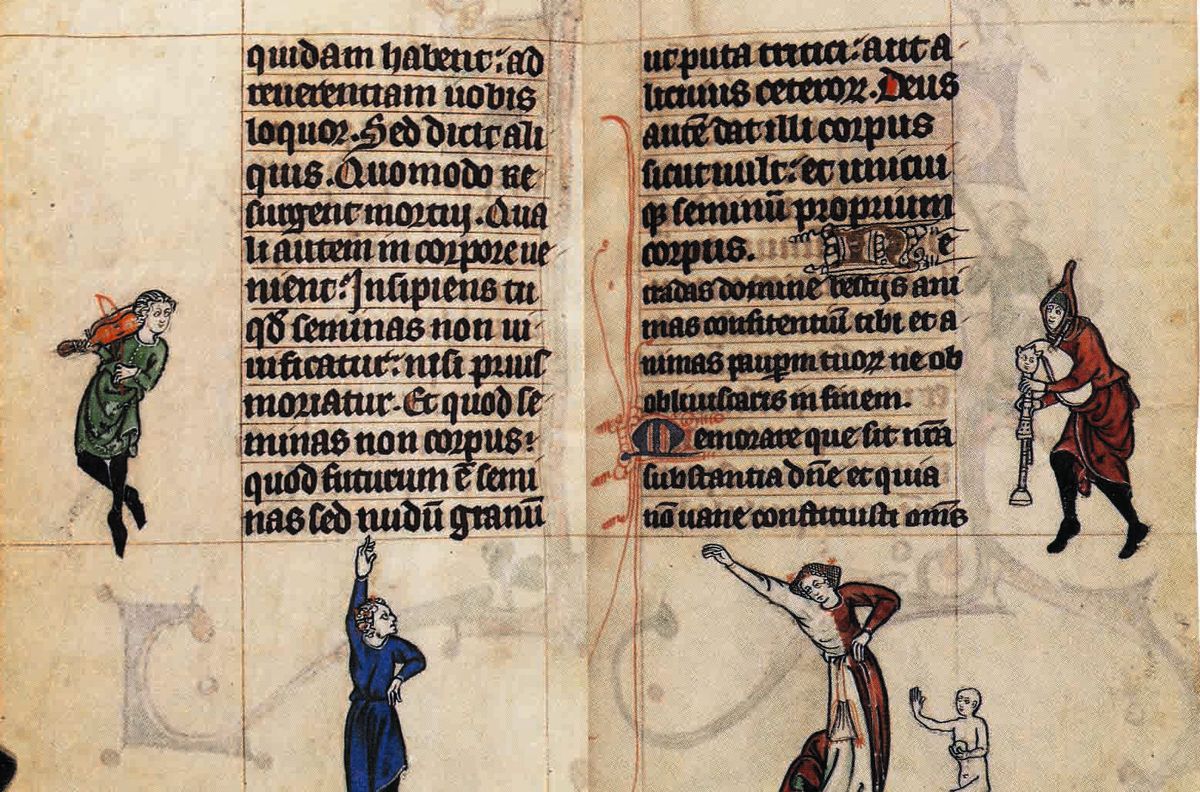 quidam habent: ad
reuerentiam uobis
loquor. Sed dicit ali
quis. Quomodo re
surgent mortui. Qua
li autem in corpore ue
nient: Insipiens tu
qđ seminas non ui
uificatur: nisi prius
moriatur. Et quod se
minas non corpus:
quod futurum ē semi
nas sed nudū granū
ut puta tritici: aut a
licuius ceteroꝝ. Deus
autē dat illi corpus
sicut uult: et unicui
qꝫ seminū proprium
corpus. Ne
tradas domine bestijs ani
mas confitentiū tibi et a
nimas paupꝝm tuoꝝ ne ob
obliuiscaris in finem.
Memorare que sit nr̄a
substantia dn̄e et quia
nō uane constituisti om̄s